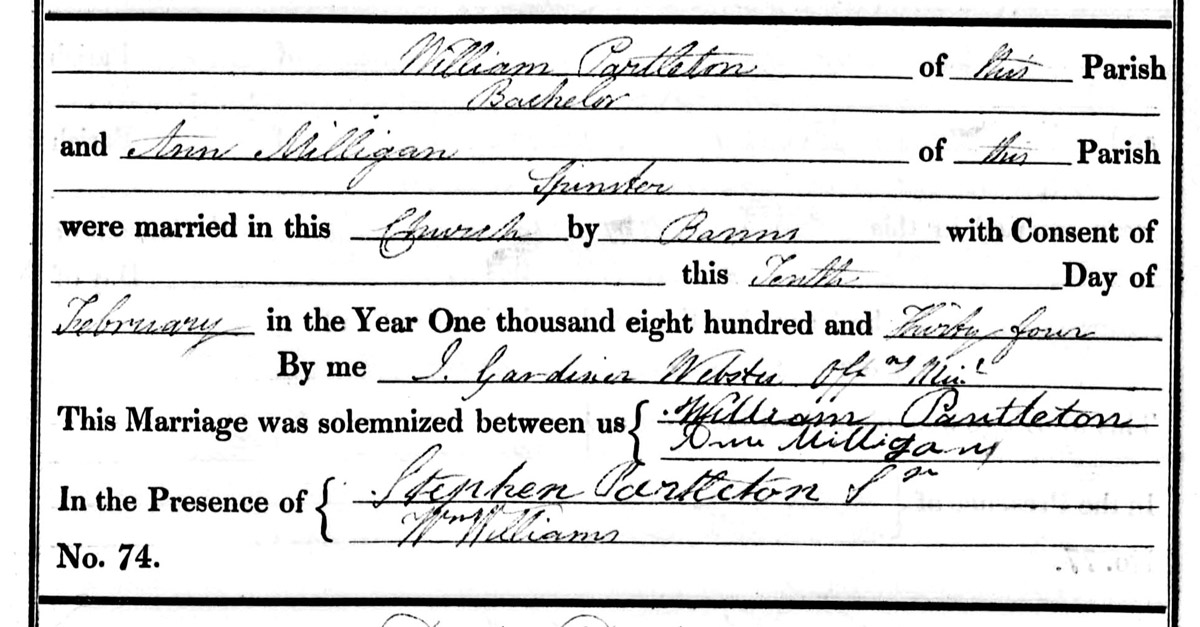 William Partleton of this Parish
Bachelor
and Ann Milligan of this Parish
Spinster
were married in this Church by Banns with Consent of
this Tenth Day of
February in the Year One thousand eight hundred and Thirty four
By me J. Gardiner Webster Offng Minr
This Marriage was solemnized between us { William Partleton
Ann Milligan
In the Presence of { Stephen Partleton Sn
Wm Williams
No. 74.